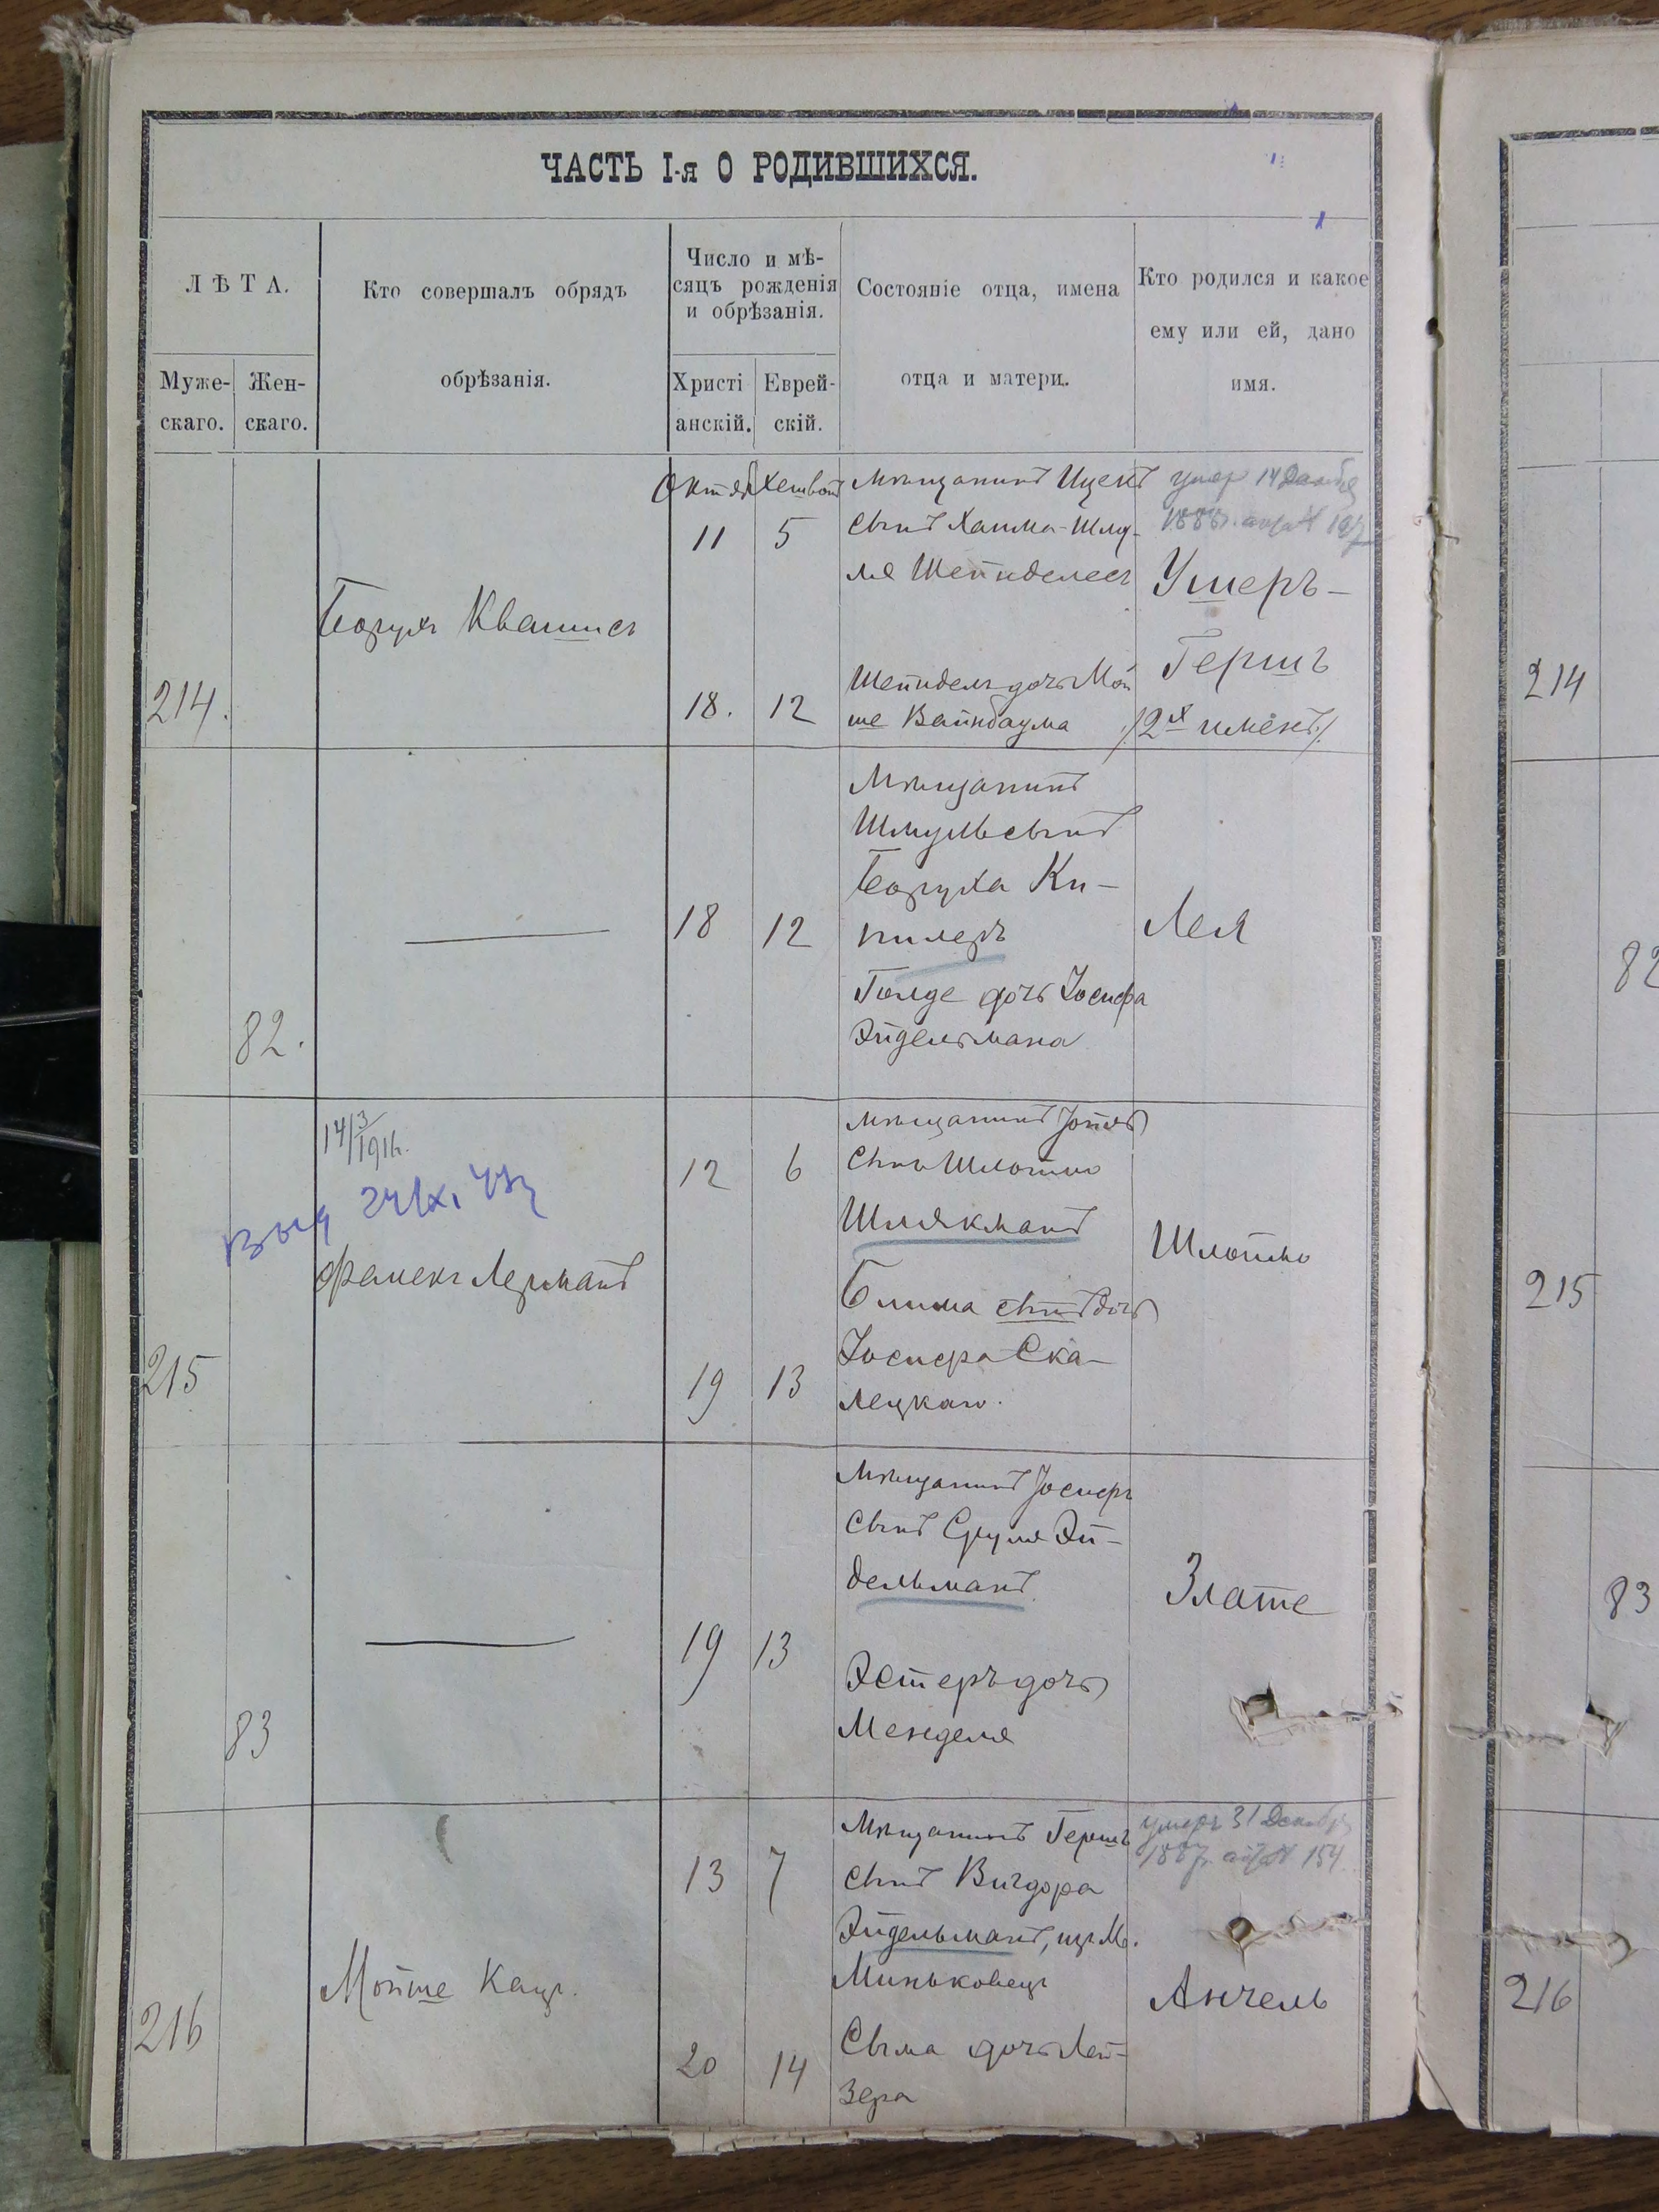 ЧАСТЬ I-я О РОДИВШИХСЯ.
ЛѢТА.
Муже-
скаго.
Жен-
скаго.
Кто совершалъ обрядъ
обрѣзанія.
Число и мѣ-
сяцъ рожденія
и обрѣзанія.
Христі
анскій.
Еврей-
скій.
Состояніе отца, имена
отца и матери.
Кто родился и какое
ему или ей, дано
имя.
214.
Борухъ Квашисъ
11
5
18.
12
Мѣщанинъ Ицекъ
сынъ Хаима-Шму-
ля Шейнделесъ
Шейндель дочь Мой
ше Вайнбаума
умер 14
Ушеръ-
Гершъ
/2х именъ/
214
82.
18
12
Мѣщанинъ
Шмуль сынъ
Боруха Ки-
пилеръ
Голде дочь Іосифа
Эйдельмана
Лея
82
215
14/3
1916.
Фалекъ Лерманъ
12
6
19
13
Мѣщанинъ
сынъ Шлоймо
Шлякманъ
Блима сынъ дочь
Іосифа Ска-
лецкаго.
Шлоймо
215
83
19
13
Мѣщанинъ Іосифъ
сынъ Сруля Эй-
дельманъ
Эстеръ дочь
Менделя
Злате
83
216
Мойше Кацъ.
13
7
20
14
Мѣщанинъ Гершъ
сынъ Вигдора
Эйдельманъ, изъ М.
Миньковецъ
Сыма дочь Лей-
зера
умеръ 31 Декабр
1887 154
Анчель
216